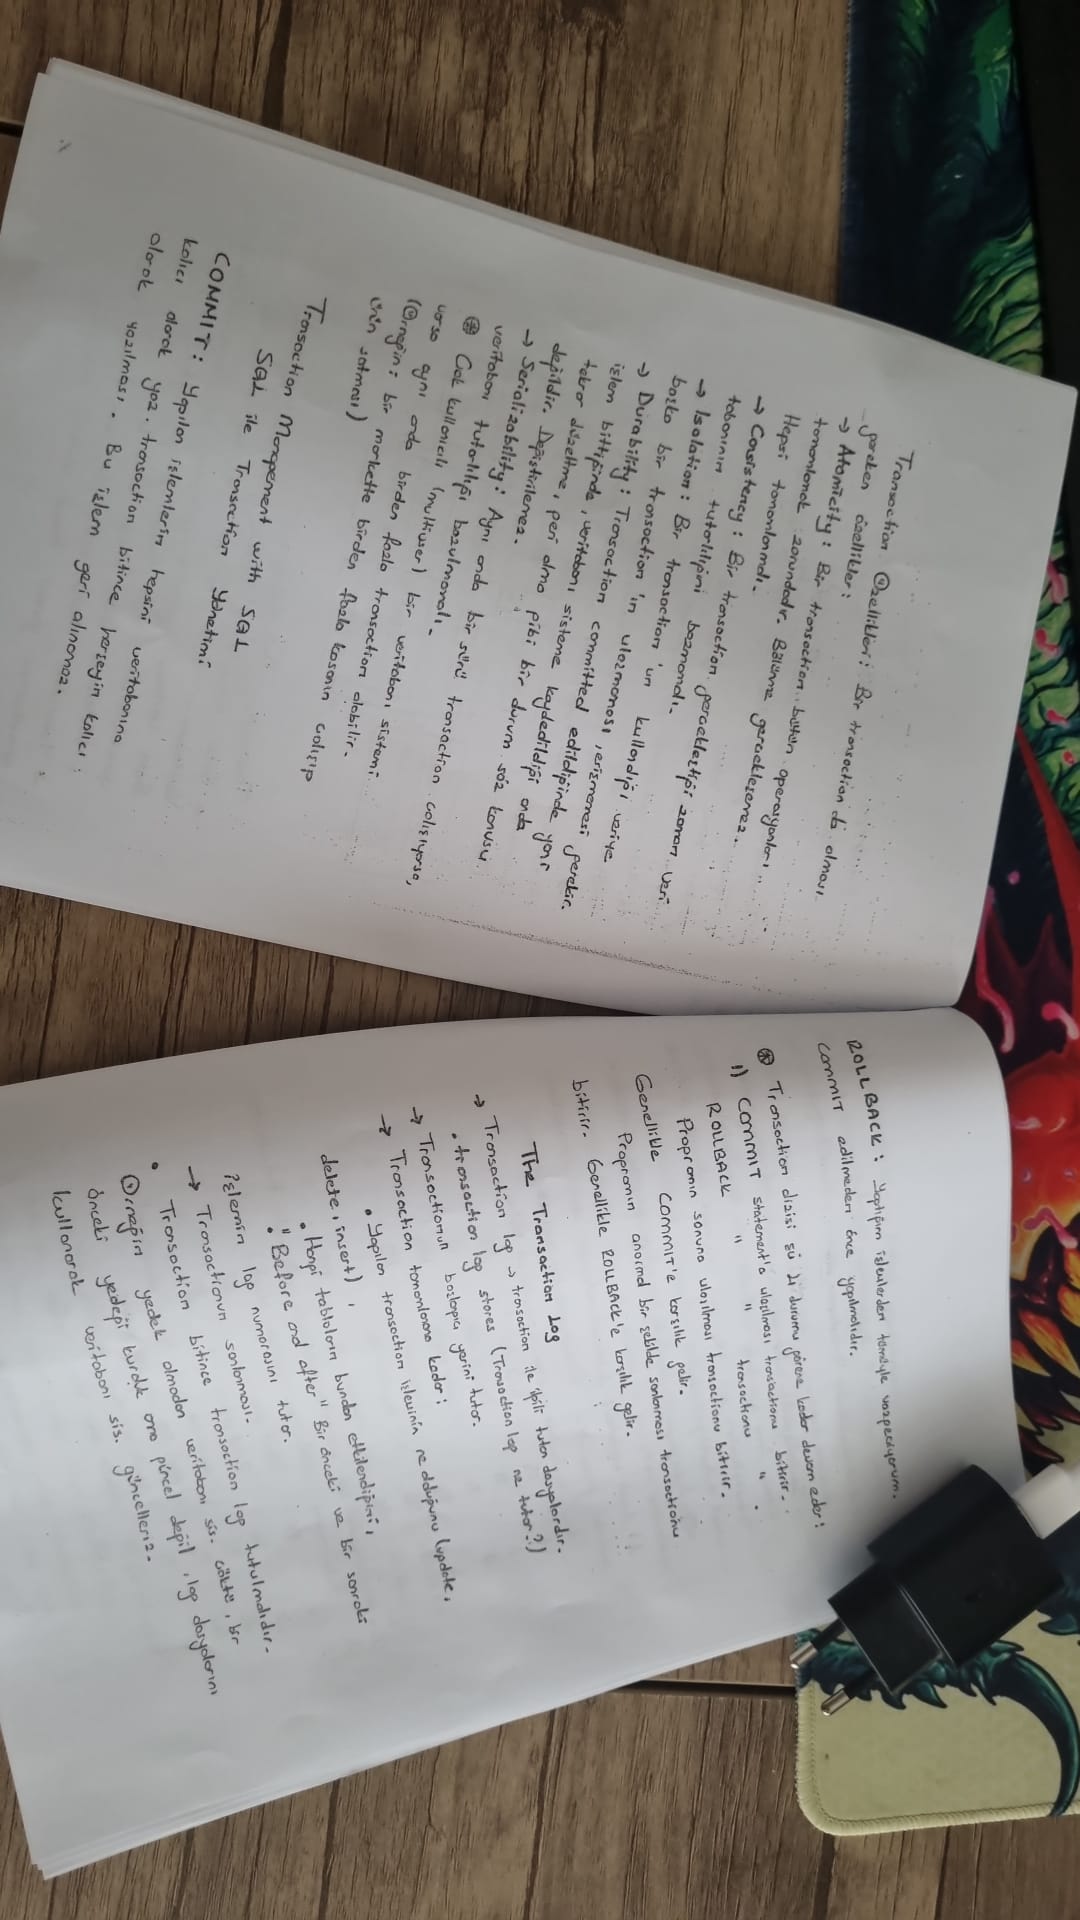 Transaction Özellikleri: Bir transaction da olması
gereken özellikler:
→ Atomicity: Bir transaction bütün operasyonları
tamamlamak zorundadır. Bölünme gerçekleşemez.
Hepsi tamamlanmalı.
→ Consistency: Bir transaction gerçekleştiği zaman veri
tabanının tutarlılığını bozmamalı.
→ Isolation: Bir transaction'un kullandığı veriye
başka bir transaction'ın ulaşmaması, erişmemesi gerekir.
→ Durability: Transaction committed edildiğinde yani
işlem bittiğinde, veritabanı sisteme kaydedildiği anda
tekrar düzeltme, geri alma gibi bir durum söz konusu
değildir. Değiştirilemez.
→ Serializability: Aynı anda bir sürü transaction çalışıyorsa,
veritabanı tutarlılığı bozulmamalı.
⊛ Çok kullanıcılı (multiuser) bir veritabanı sistemi
varsa aynı anda birden fazla transaction olabilir.
(Örneğin: bir markette birden fazla kasanın çalışıp
ürün satması)
Transaction Management with SQL
SQL ile Transaction Yönetimi
COMMIT: Yapılan işlemlerin hepsini veritabanına
kalıcı olarak yaz. transaction bitince herşeyin kalıcı
olarak yazılması. Bu işlem geri alınamaz.
ROLLBACK: Yaptığım işlemlerden tamamıyla vazgeçiyorum.
COMMIT edilmeden önce yapılmalıdır.
⊛ Transaction dizisi şu 2i durumu görene kadar devam eder:
1) COMMIT statement'a ulaşılması transactionu bitirir.
ROLLBACK " " transactionu " .
Programın sonuna ulaşılması transactionu bitirir.
Genellikle COMMIT'e karşılık gelir.
Programın anormal bir şekilde sonlanması transactionu
bitirir. Genellikle ROLLBACK'e karşılık gelir.
The Transaction Log
→ Transaction log → transaction ile ilgili tutan dosyalardır.
• transaction log stores (Transaction log ne tutar?)
→ Transactionun başlangıç yerini tutar.
→ Transaction tamamlanana kadar:
• Yapılan transaction işleminin ne olduğunu (update,
delete, insert),
• Hangi tabloların bundan etkilendiğini,
• "Before and after" Bir önceki ve bir sonraki
işlemin log numarasını tutar.
→ Transactionun sonlanması.
• Transaction bitince transaction log tutulmalıdır.
Örneğin yedek almadan veritabanı sis. çöktü, bir
önceki yedeği kurduk ama güncel değil, log dosyalarını
kullanarak veritabanı sis. güncelleriz.